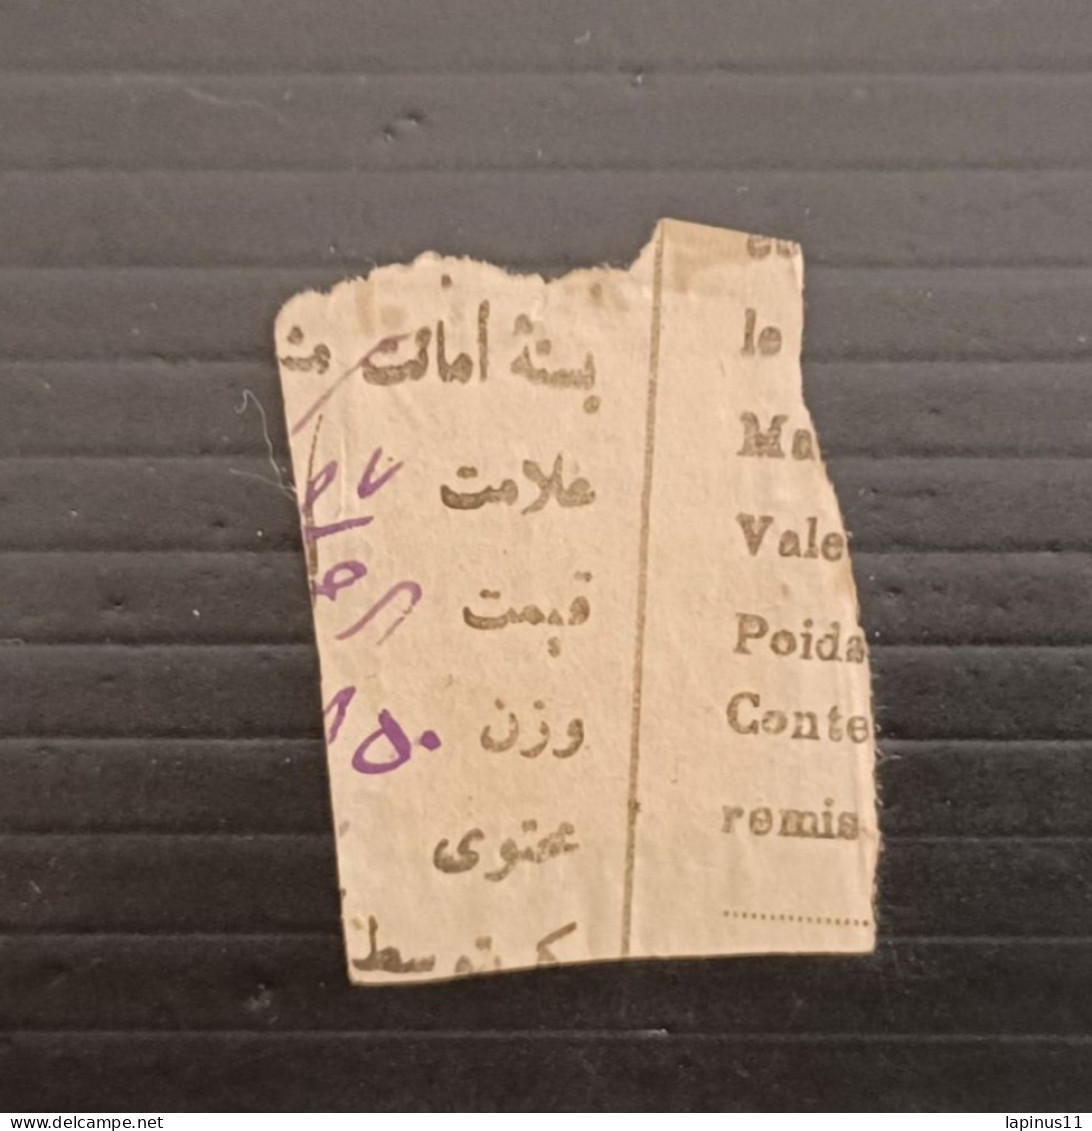 بستهٔ امانت
علامت
قیمت
وزن
۸۵۰
محتوی
که توسط
le
Ma
Vale
Poids
Conte
remis
lapinus11